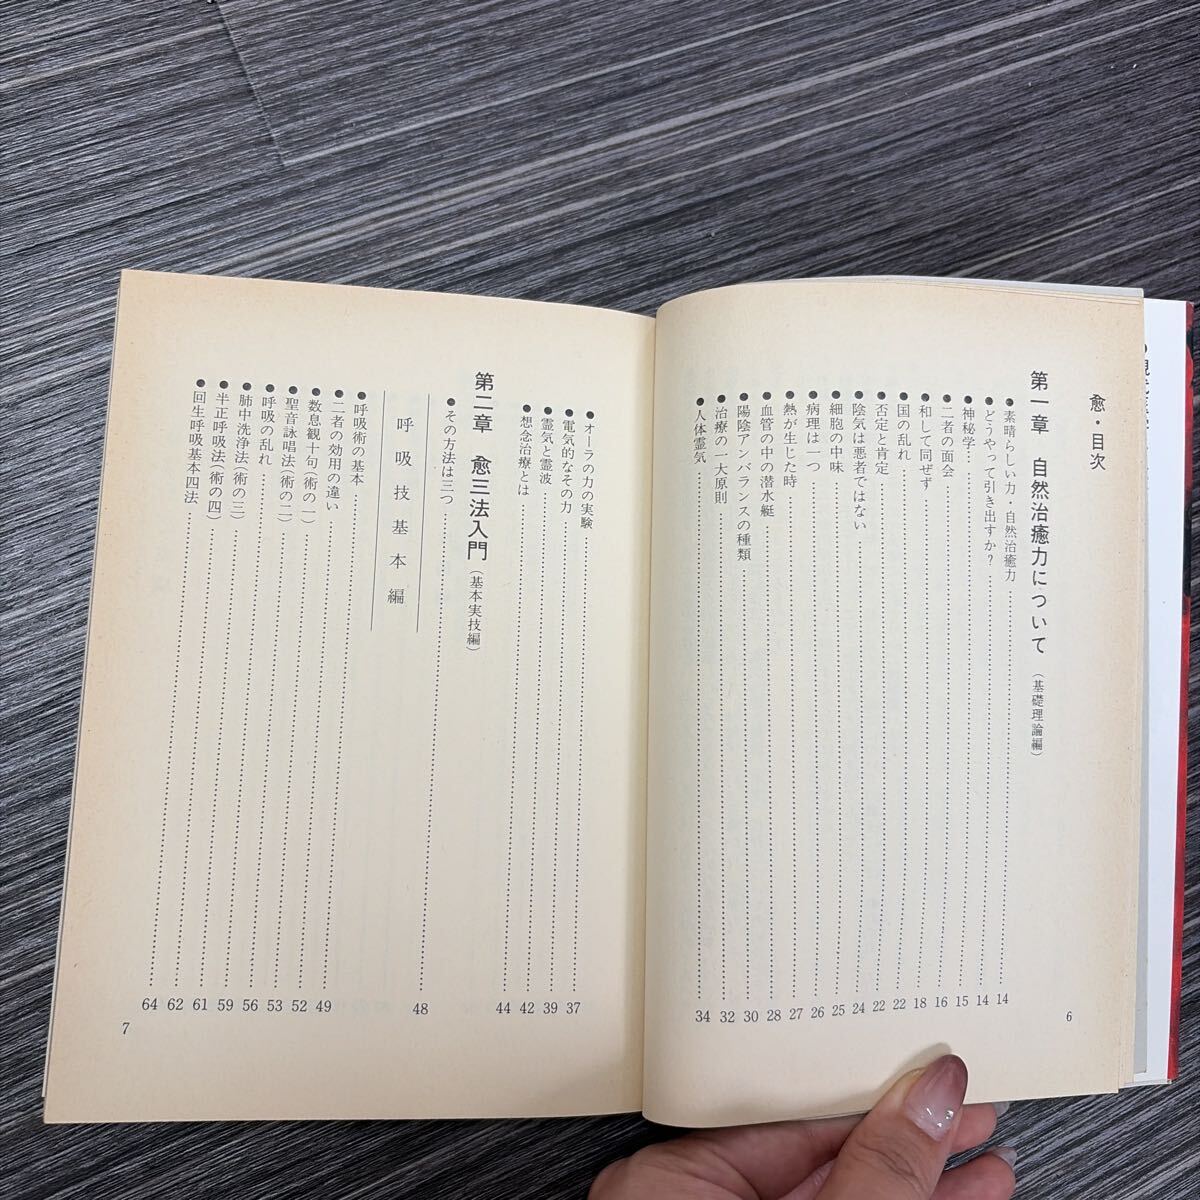 愈・目次
第一章　自然治癒力について（基礎理論編）
●素晴らしい力・自然治癒力……14
●どうやって引き出すか？……14
●神秘学……15
●二者の面会……16
●和して同ぜず……18
●国の乱れ……22
●否定と肯定……22
●陰気は悪者ではない……24
●細胞の中味……25
●病理は一つ……26
●熱が生じた時……27
●血管の中の潜水艇……28
●陽陰アンバランスの種類……30
●治療の一大原則……32
●人体霊気……34
6
●オーラの力の実験……37
●電気的なその力……39
●霊気と霊波……42
●想念治療とは……44
第二章　愈三法入門（基本実技編）
●その方法は三つ……48
呼吸技基本編
●呼吸術の基本……49
●二者の効用の違い……52
●数息観十句（術の一）……53
●聖音詠唱法（術の二）……56
●呼吸の乱れ……59
●肺中洗浄法（術の三）……61
●半正呼吸法（術の四）……62
●回生呼吸基本四法……64
7